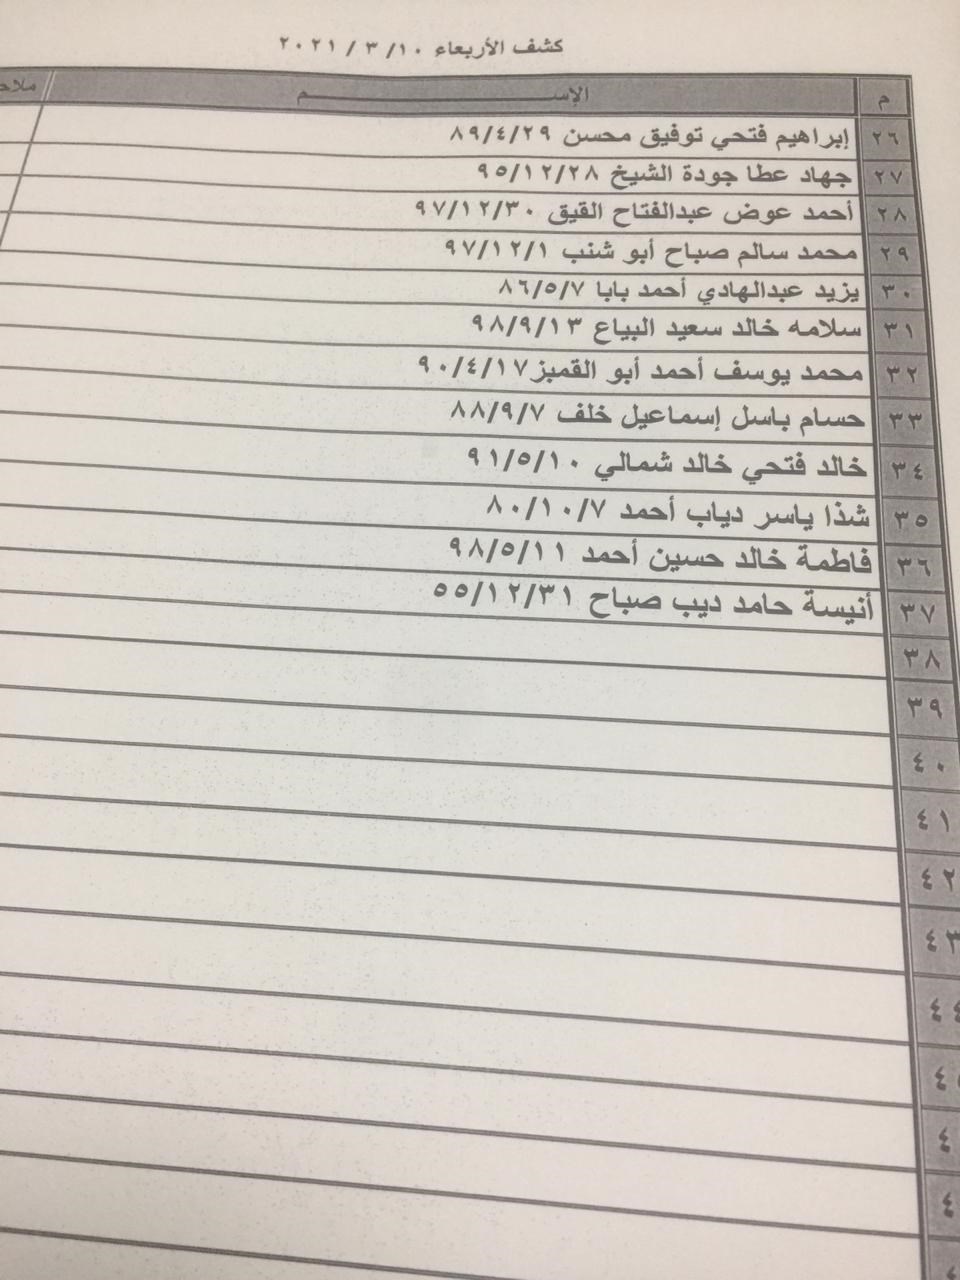 كشف الأربعاء ١٠/ ٣ / ٢٠٢١
م الإســــــــــم
٢٦ إبراهيم فتحي توفيق محسن ٨٩/٤/٢٩
٢٧ جهاد عطا جودة الشيخ ٩٥/١٢/٢٨
٢٨ أحمد عوض عبدالفتاح القيق ٩٧/١٢/٣٠
٢٩ محمد سالم صباح أبو شنب ٩٧/١٢/١
٣٠ يزيد عبدالهادي أحمد بابا ٨٦/٥/٧
٣١ سلامه خالد سعيد البياع ٩٨/٩/١٣
٣٢ محمد يوسف أحمد أبو القمبز ٩٠/٤/١٧
٣٣ حسام باسل إسماعيل خلف ٨٨/٩/٧
٣٤ خالد فتحي خالد شمالي ٩١/٥/١٠
٣٥ شذا ياسر دياب أحمد ٨٠/١٠/٧
٣٦ فاطمة خالد حسين أحمد ٩٨/٥/١١
٣٧ أنيسة حامد ديب صباح ٥٥/١٢/٣١
٣٨
٣٩
٤٠
٤١
٤٢
٤٣
٤٤